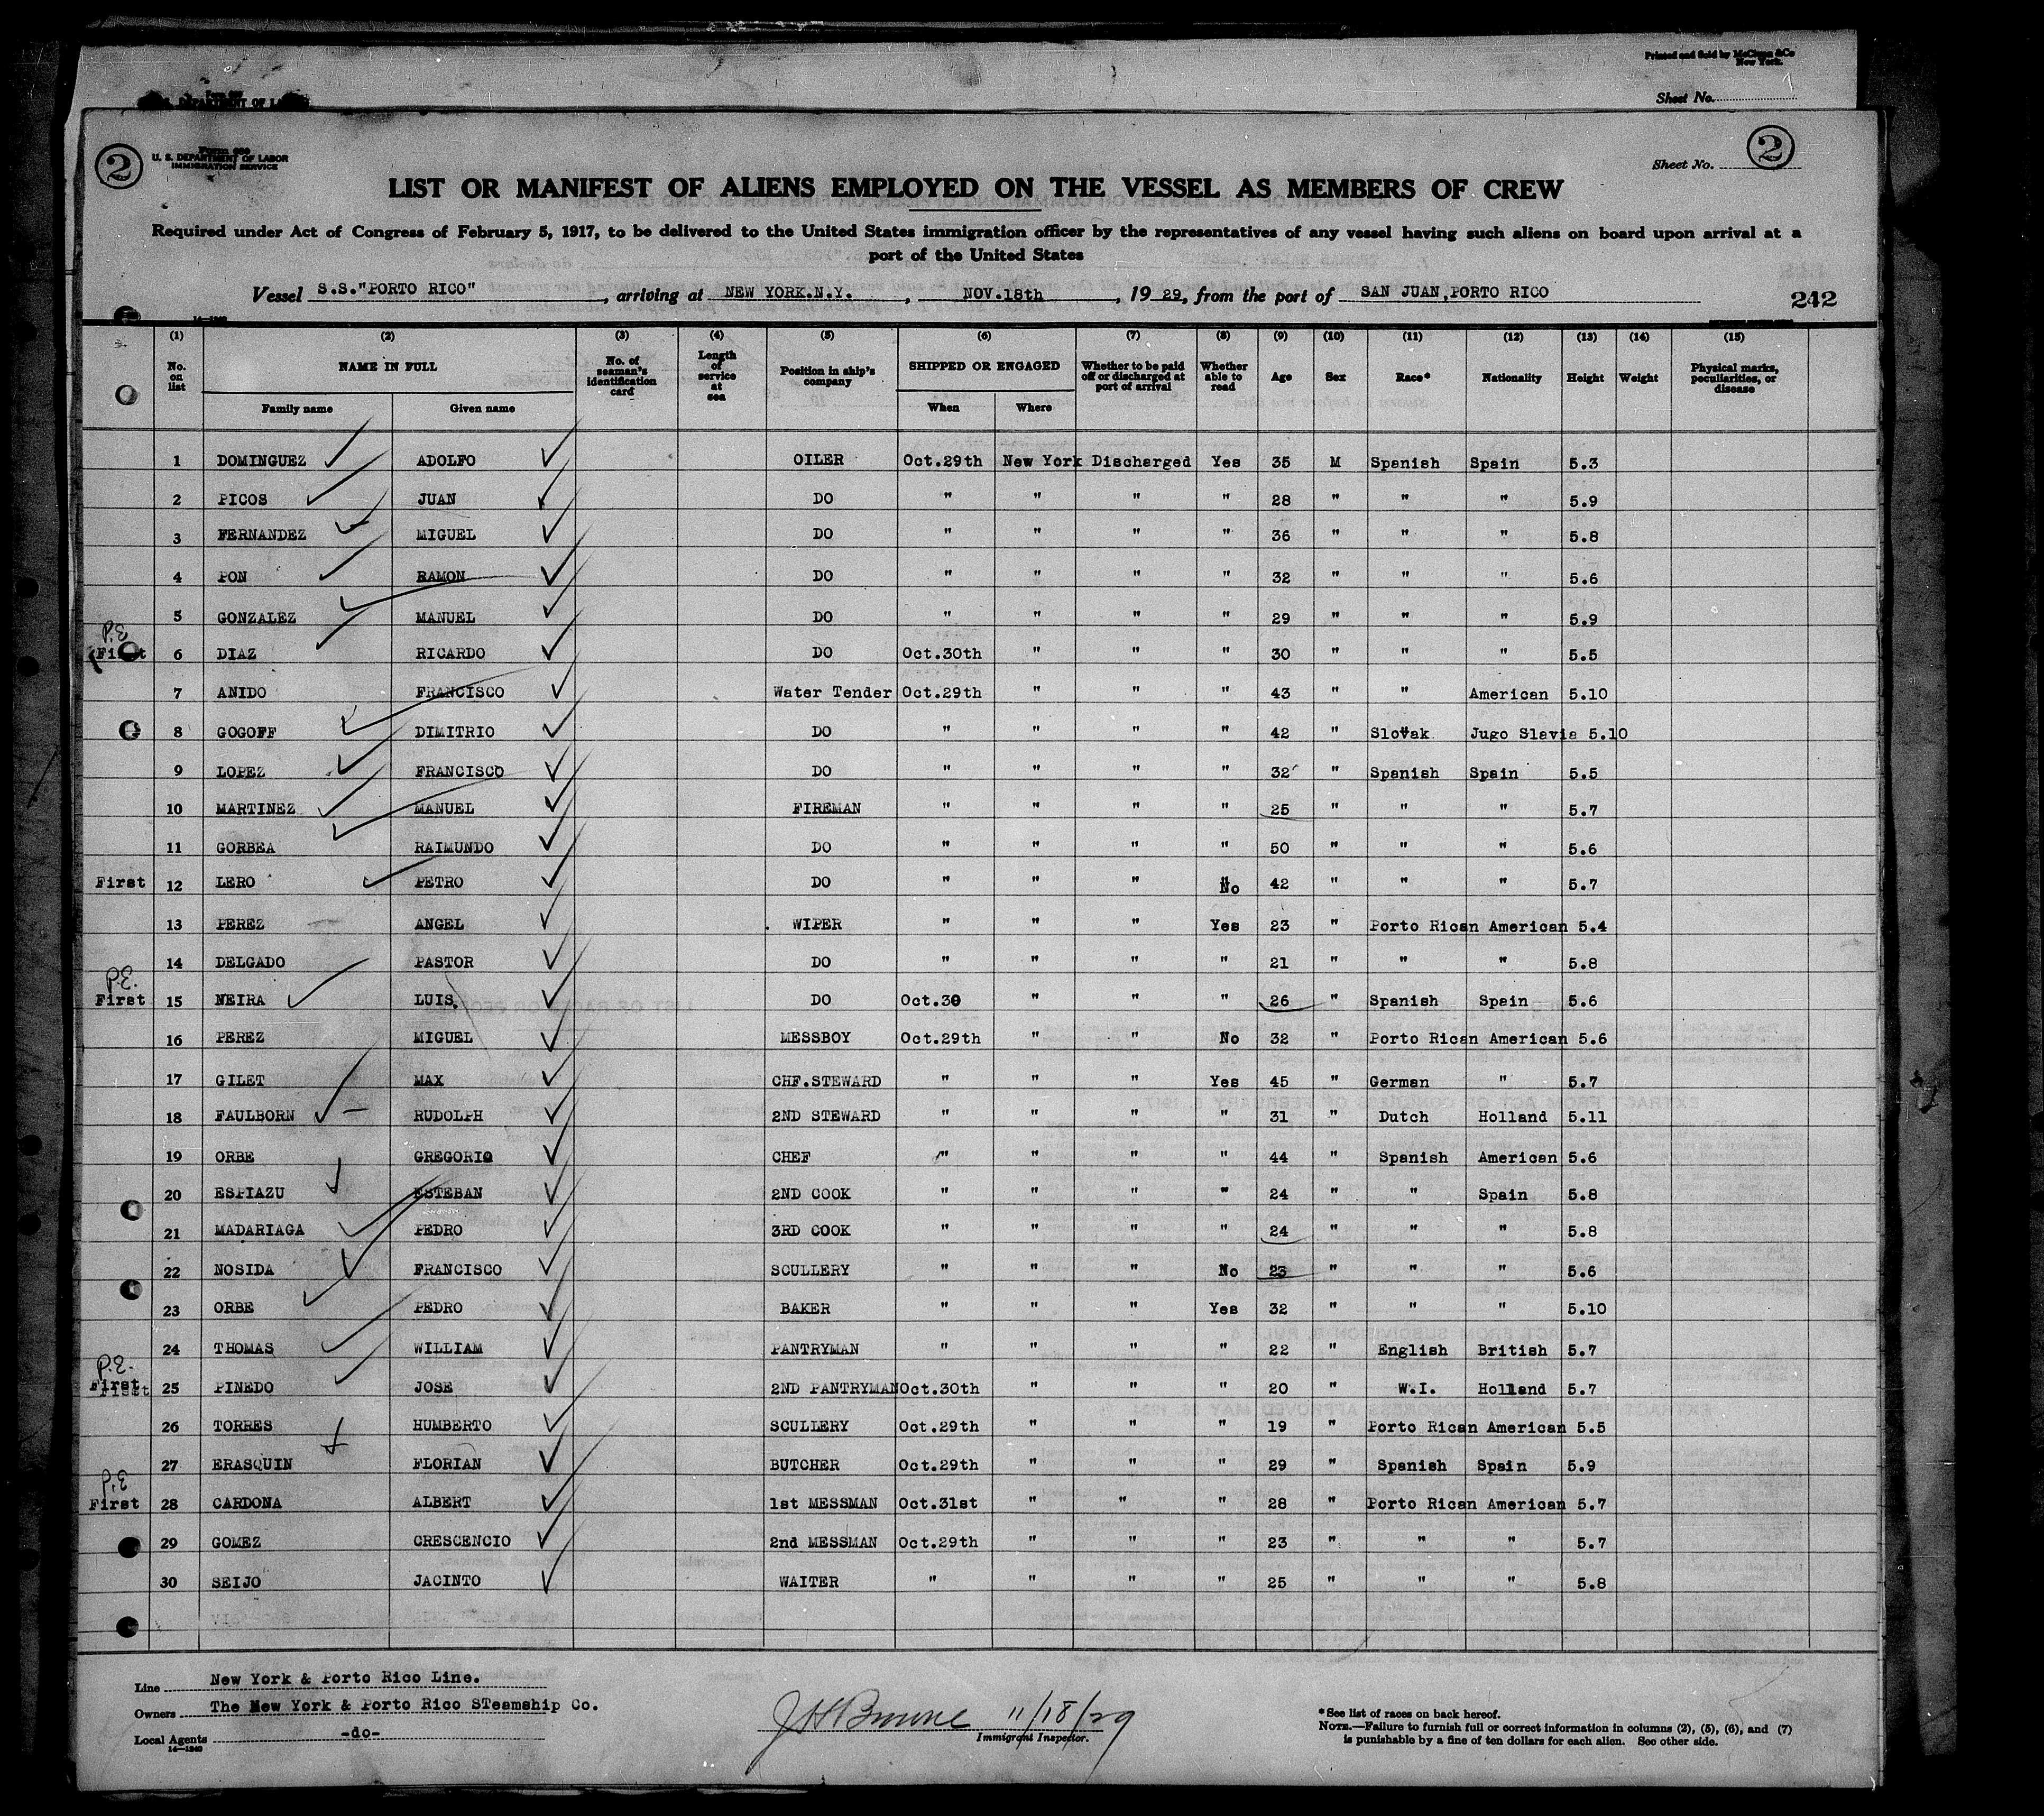 Printed and Sold by McClean &Co
New York.
Sheet No.
DEPARTMENT OF LA
2
Form 689
U. S. DEPARTMENT OF LABOR
IMMIGRATION SERVICE
Sheet No. 2
LIST OR MANIFEST OF ALIENS EMPLOYED ON THE VESSEL AS MEMBERS OF CREW
Required under Act of Congress of February 5, 1917, to be delivered to the United States immigration officer by the representatives of any vessel having such aliens on board upon arrival at a
port of the United States
Vessel S.S."PORTO RICO", arriving at NEW YORK.N.Y., NOV.18th, 1929, from the port of SAN JUAN,PORTO RICO
242
14—1240
(1) (2) (3) (4) (5) (6) (7) (8) (9) (10) (11) (12) (13) (14) (15)
No. on list NAME IN FULL Family name Given name No. of seaman's identification card Length of service at sea Position in ship's company SHIPPED OR ENGAGED When Where Whether to be paid off or discharged at port of arrival Whether able to read Age Sex Race* Nationality Height Weight Physical marks, peculiarities, or disease
1 DOMINGUEZ ADOLFO OILER Oct.29th New York Discharged Yes 35 M Spanish Spain 5.3
2 PICOS JUAN DO " " " " 28 " " " 5.9
3 FERNANDEZ MIGUEL DO " " " " 36 " " " 5.8
4 PON RAMON DO " " " " 32 " " " 5.6
5 GONZALEZ MANUEL DO " " " " 29 " " " 5.9
P.E
First 6 DIAZ RICARDO DO Oct.30th " " " 30 " " " 5.5
7 ANIDO FRANCISCO Water Tender Oct.29th " " " 43 " " American 5.10
8 GOGOFF DIMITRIO DO " " " " 42 " Slovak Jugo Slavia 5.10
9 LOPEZ FRANCISCO DO " " " " 32 " Spanish Spain 5.5
10 MARTINEZ MANUEL FIREMAN " " " " 25 " " " 5.7
11 GORBEA RAIMUNDO DO " " " " 50 " " " 5.6
First 12 LERO PETRO DO " " " No 42 " " " 5.7
13 PEREZ ANGEL WIPER " " " Yes 23 " Porto Rican American 5.4
14 DELGADO PASTOR DO " " " " 21 " " " 5.8
P.E.
First 15 NEIRA LUIS. DO Oct.30 " " " 26 " Spanish Spain 5.6
16 PEREZ MIGUEL MESSBOY Oct.29th " " No 32 " Porto Rican American 5.6
17 GILET MAX CHF.STEWARD " " " Yes 45 " German " 5.7
18 FAULBORN RUDOLPH 2ND STEWARD " " " " 31 " Dutch Holland 5.11
19 ORBE GREGORIO CHEF " " " " 44 " Spanish American 5.6
20 ESPIAZU ESTEBAN 2ND COOK " " " " 24 " " Spain 5.8
21 MADARIAGA PEDRO 3RD COOK " " " " 24 " " " 5.8
22 NOSIDA FRANCISCO SCULLERY " " " No 23 " " " 5.6
23 ORBE PEDRO BAKER " " " Yes 32 " " " 5.10
24 THOMAS WILLIAM PANTRYMAN " " " " 22 " English British 5.7
P.E.
First 25 PINEDO JOSE 2ND PANTRYMAN Oct.30th " " " 20 " W.I. Holland 5.7
26 TORRES HUMBERTO SCULLERY Oct.29th " " " 19 " Porto Rican American 5.5
27 ERASQUIN FLORIAN BUTCHER Oct.29th " " " 29 " Spanish Spain 5.9
P.E
First 28 CARDONA ALBERT 1st MESSMAN Oct.31st " " " 28 " Porto Rican American 5.7
29 GOMEZ CRESCENCIO 2nd MESSMAN Oct.29th " " " 23 " " " 5.7
30 SEIJO JACINTO WAITER " " " " 25 " " " 5.8
Line New York & Porto Rico Line.
Owners The New York & Porto Rico STeamship Co.
Local Agents -do-
14—1240
JH Browne 11/18/29
Immigrant Inspector.
*See list of races on back hereof.
NOTE.—Failure to furnish full or correct information in columns (2), (5), (6), and (7)
is punishable by a fine of ten dollars for each alien. See other side.